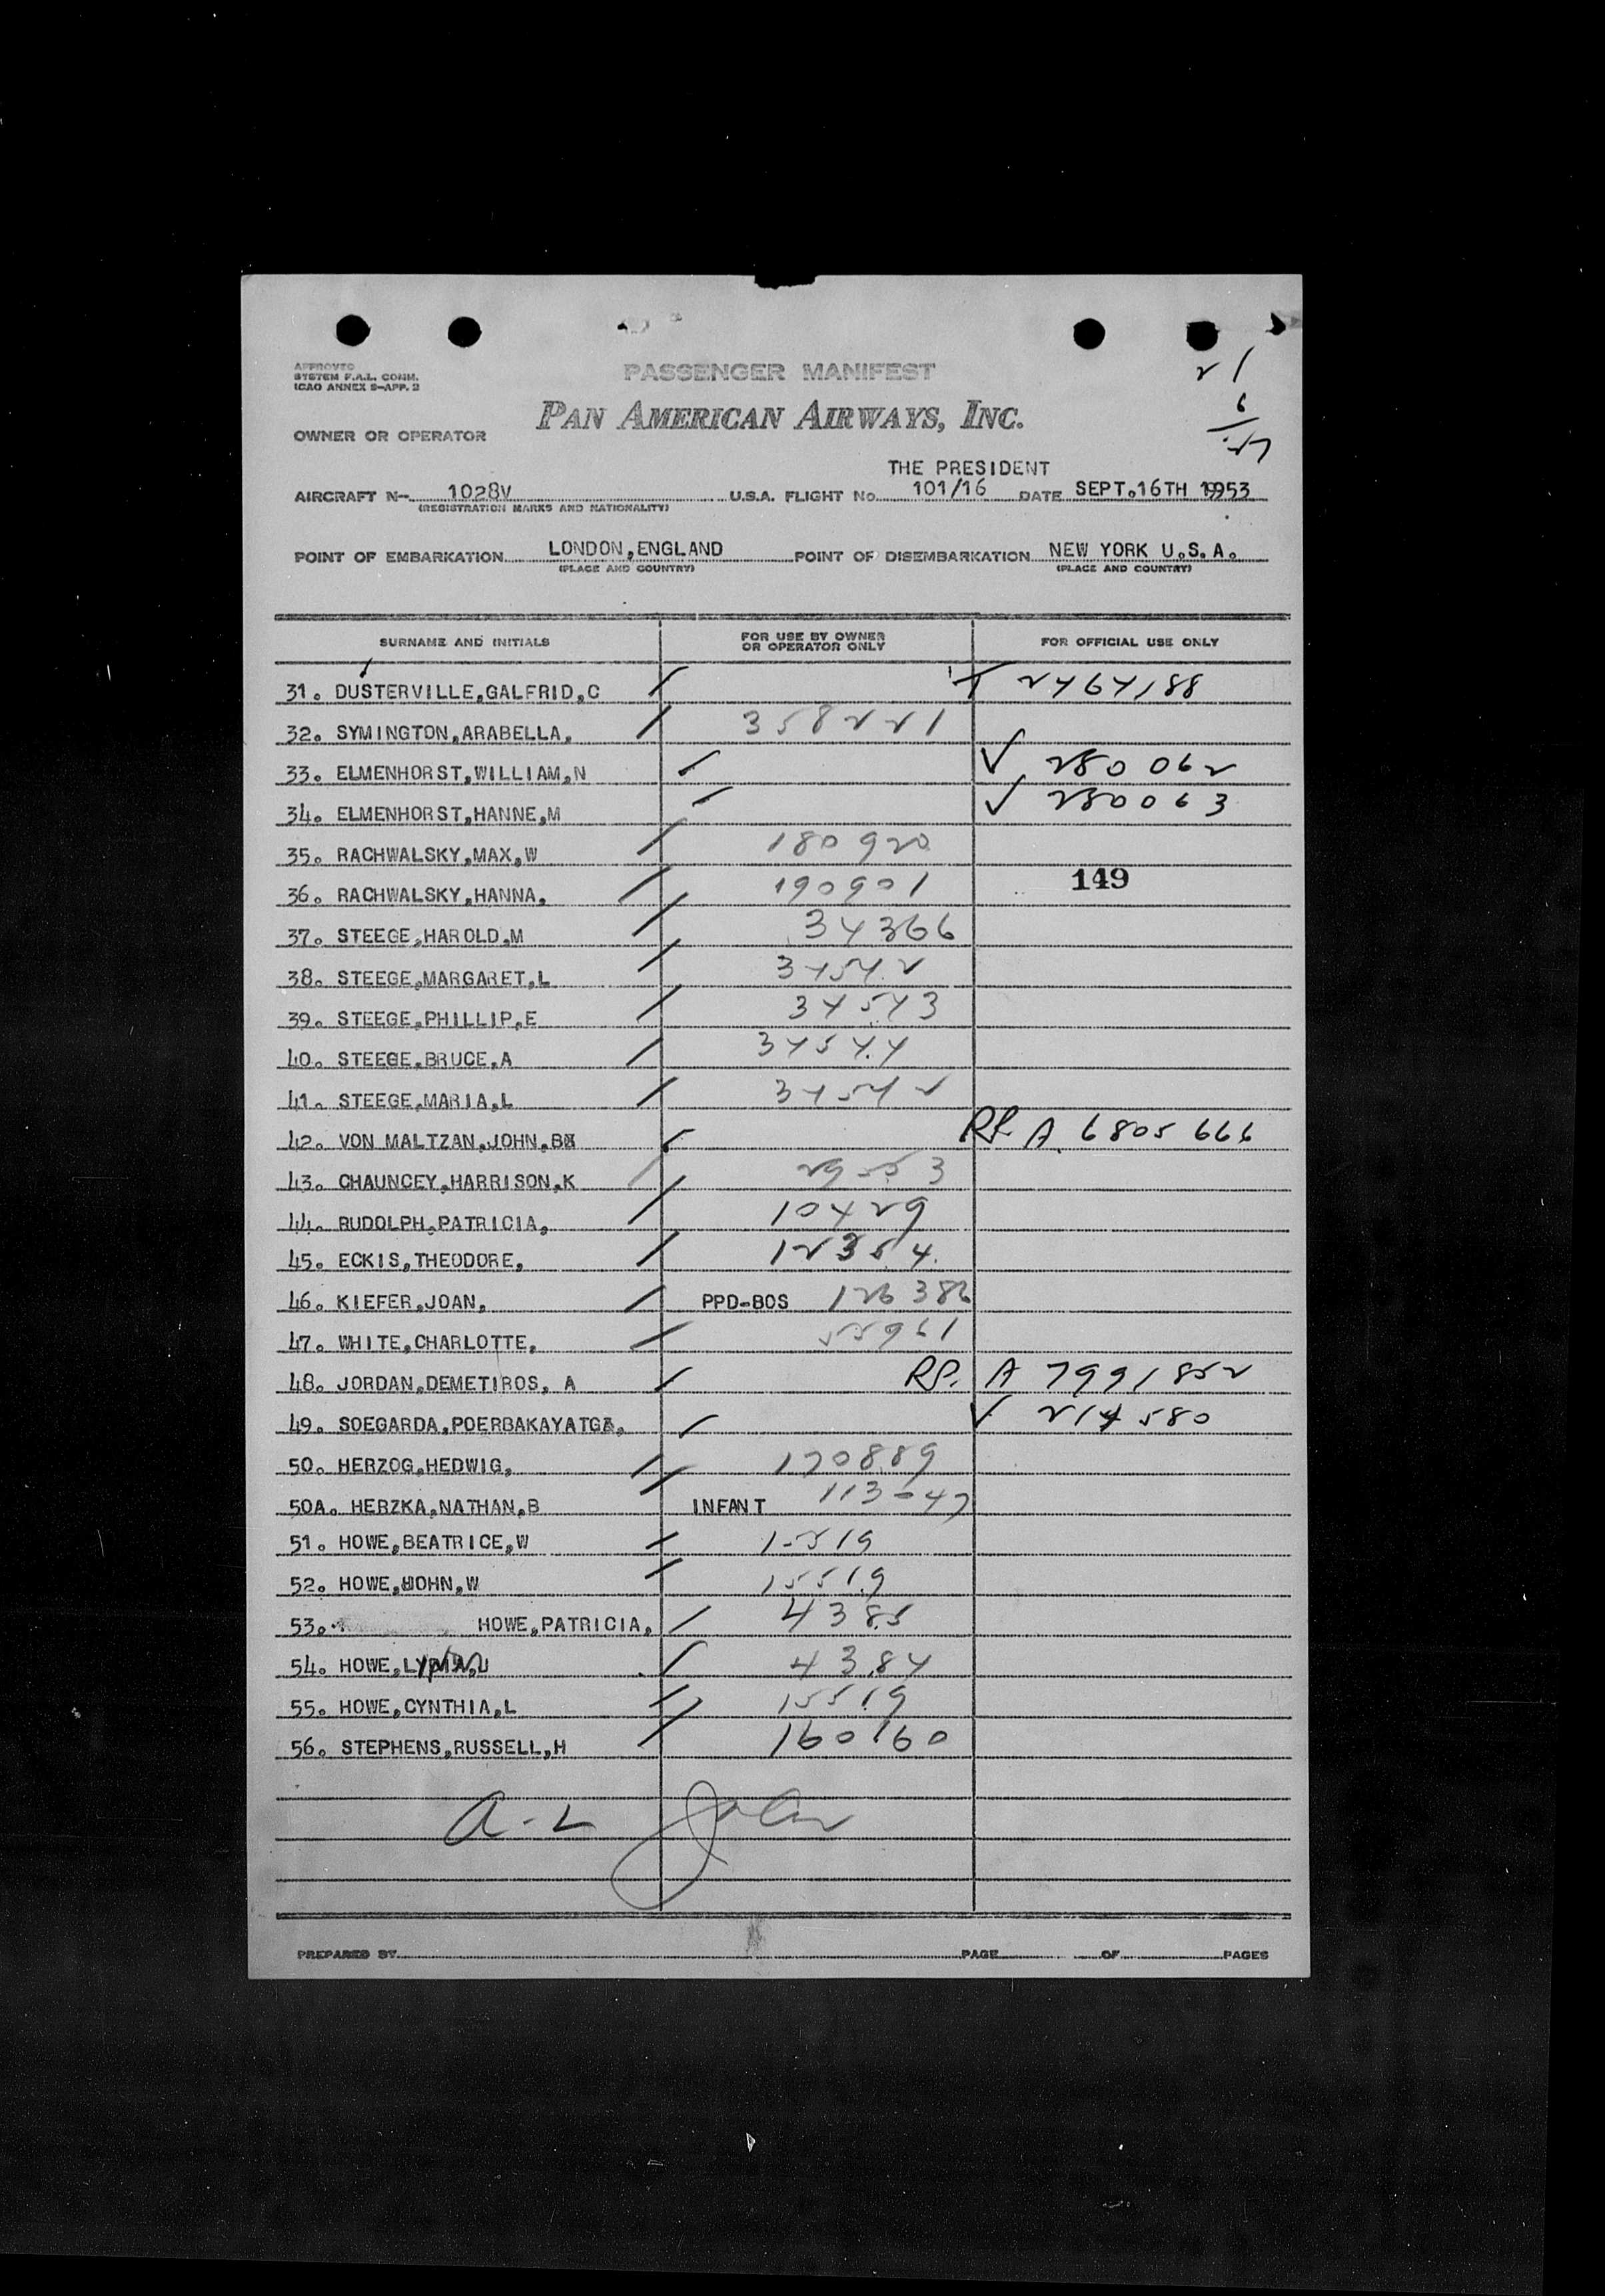 APPROVED
SYSTEM F.A.L. COMM.
ICAO ANNEX 9-APP. 2
PASSENGER MANIFEST
21
6
PAN AMERICAN AIRWAYS, INC.
OWNER OR OPERATOR
THE PRESIDENT
AIRCRAFT N- 1028V U.S.A. FLIGHT No. 101/16 DATE SEPT.16TH 1953
(REGISTRATION MARKS AND NATIONALITY)
POINT OF EMBARKATION LONDON,ENGLAND POINT OF DISEMBARKATION NEW YORK U.S.A.
(PLACE AND COUNTRY) (PLACE AND COUNTRY)
SURNAME AND INITIALS FOR USE BY OWNER OR OPERATOR ONLY FOR OFFICIAL USE ONLY
31. DUSTERVILLE,GALFRID,C / 2464188
32. SYMINGTON,ARABELLA, / 358221
33. ELMENHORST,WILLIAM,N / ✓ 280062
34. ELMENHORST,HANNE,M / ✓ 280063
35. RACHWALSKY,MAX,W / 180920
36. RACHWALSKY,HANNA, / 190901 149
37. STEEGE,HAROLD,M / 34366
38. STEEGE,MARGARET,L / 34542
39. STEEGE,PHILLIP,E / 34543
40. STEEGE,BRUCE,A / 34544
41. STEEGE,MARIA,L / 34542
42. VON MALTZAN,JOHN,B / RP. A 6805666
43. CHAUNCEY,HARRISON,K / 29553
44. RUDOLPH,PATRICIA, / 10429
45. ECKIS,THEODORE, / 12354
46. KIEFER,JOAN, / PPD-BOS 126386
47. WHITE,CHARLOTTE, / 55961
48. JORDAN,DEMETIROS, A / RP. A 7991852
49. SOEGARDA,POERBAKAYATGA, / ✓ 214580
50. HERZOG,HEDWIG, / 170889
50A. HERZKA,NATHAN,B / INFANT 113047
51. HOWE,BEATRICE,W / 15519
52. HOWE,JOHN,W / 15519
53. HOWE,PATRICIA, / 4385
54. HOWE, / 4384
55. HOWE,CYNTHIA,L / 15519
56. STEPHENS,RUSSELL,H / 160160
a-L
PREPARED BY PAGE OF PAGES